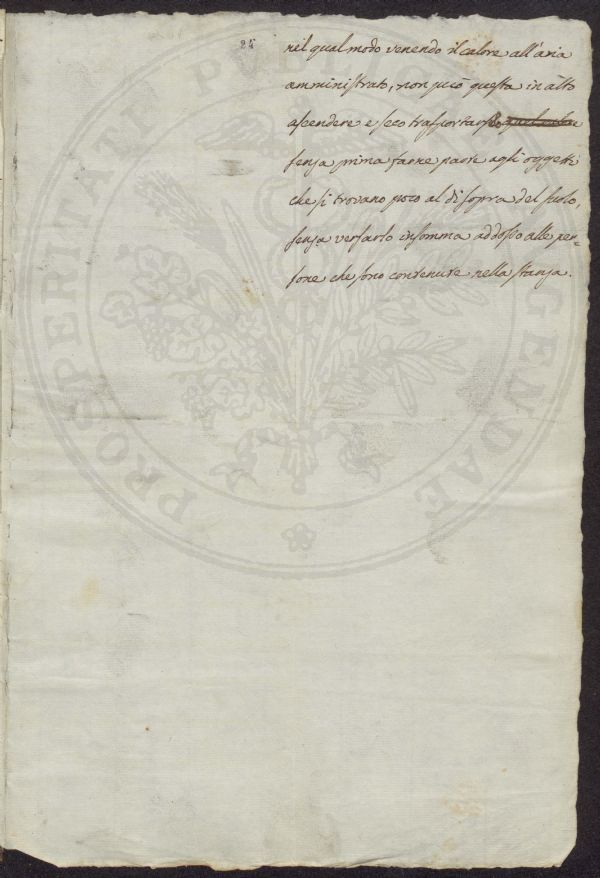 24
nel qual modo venendo il calore all'aria
amministrato, non può questa in alto
ascendere e seco trasportarselo
senza prima farne parte agli oggetti
che si trovano poco al di sopra del suolo,
senza versarlo insomma addosso alle per-
sone che sono convenute nella stanza.
PROSPERITATI PUBL AUGENDAE